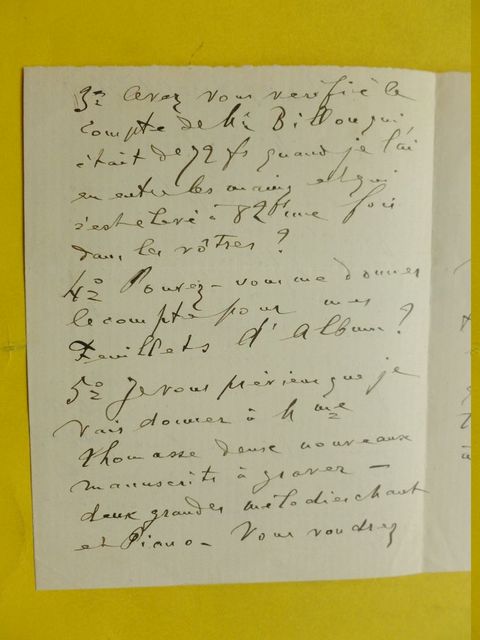 3º Avez vous vérifié le
compte de Mr Billon qui
était de 72 fs quand je l'ai
eu entre les mains et qui
s'est elevé à 82 fs une fois
dans les vôtres ?
4º Pouvez-vous me donner
le compte pour mes
Feuillets d'Album ?
5º Je vous préviens que je
vais donner à Mme
Thomasse deux nouveaux
manuscrits à graver —
deux grandes mélodies chant
et Piano — Vous voudrez